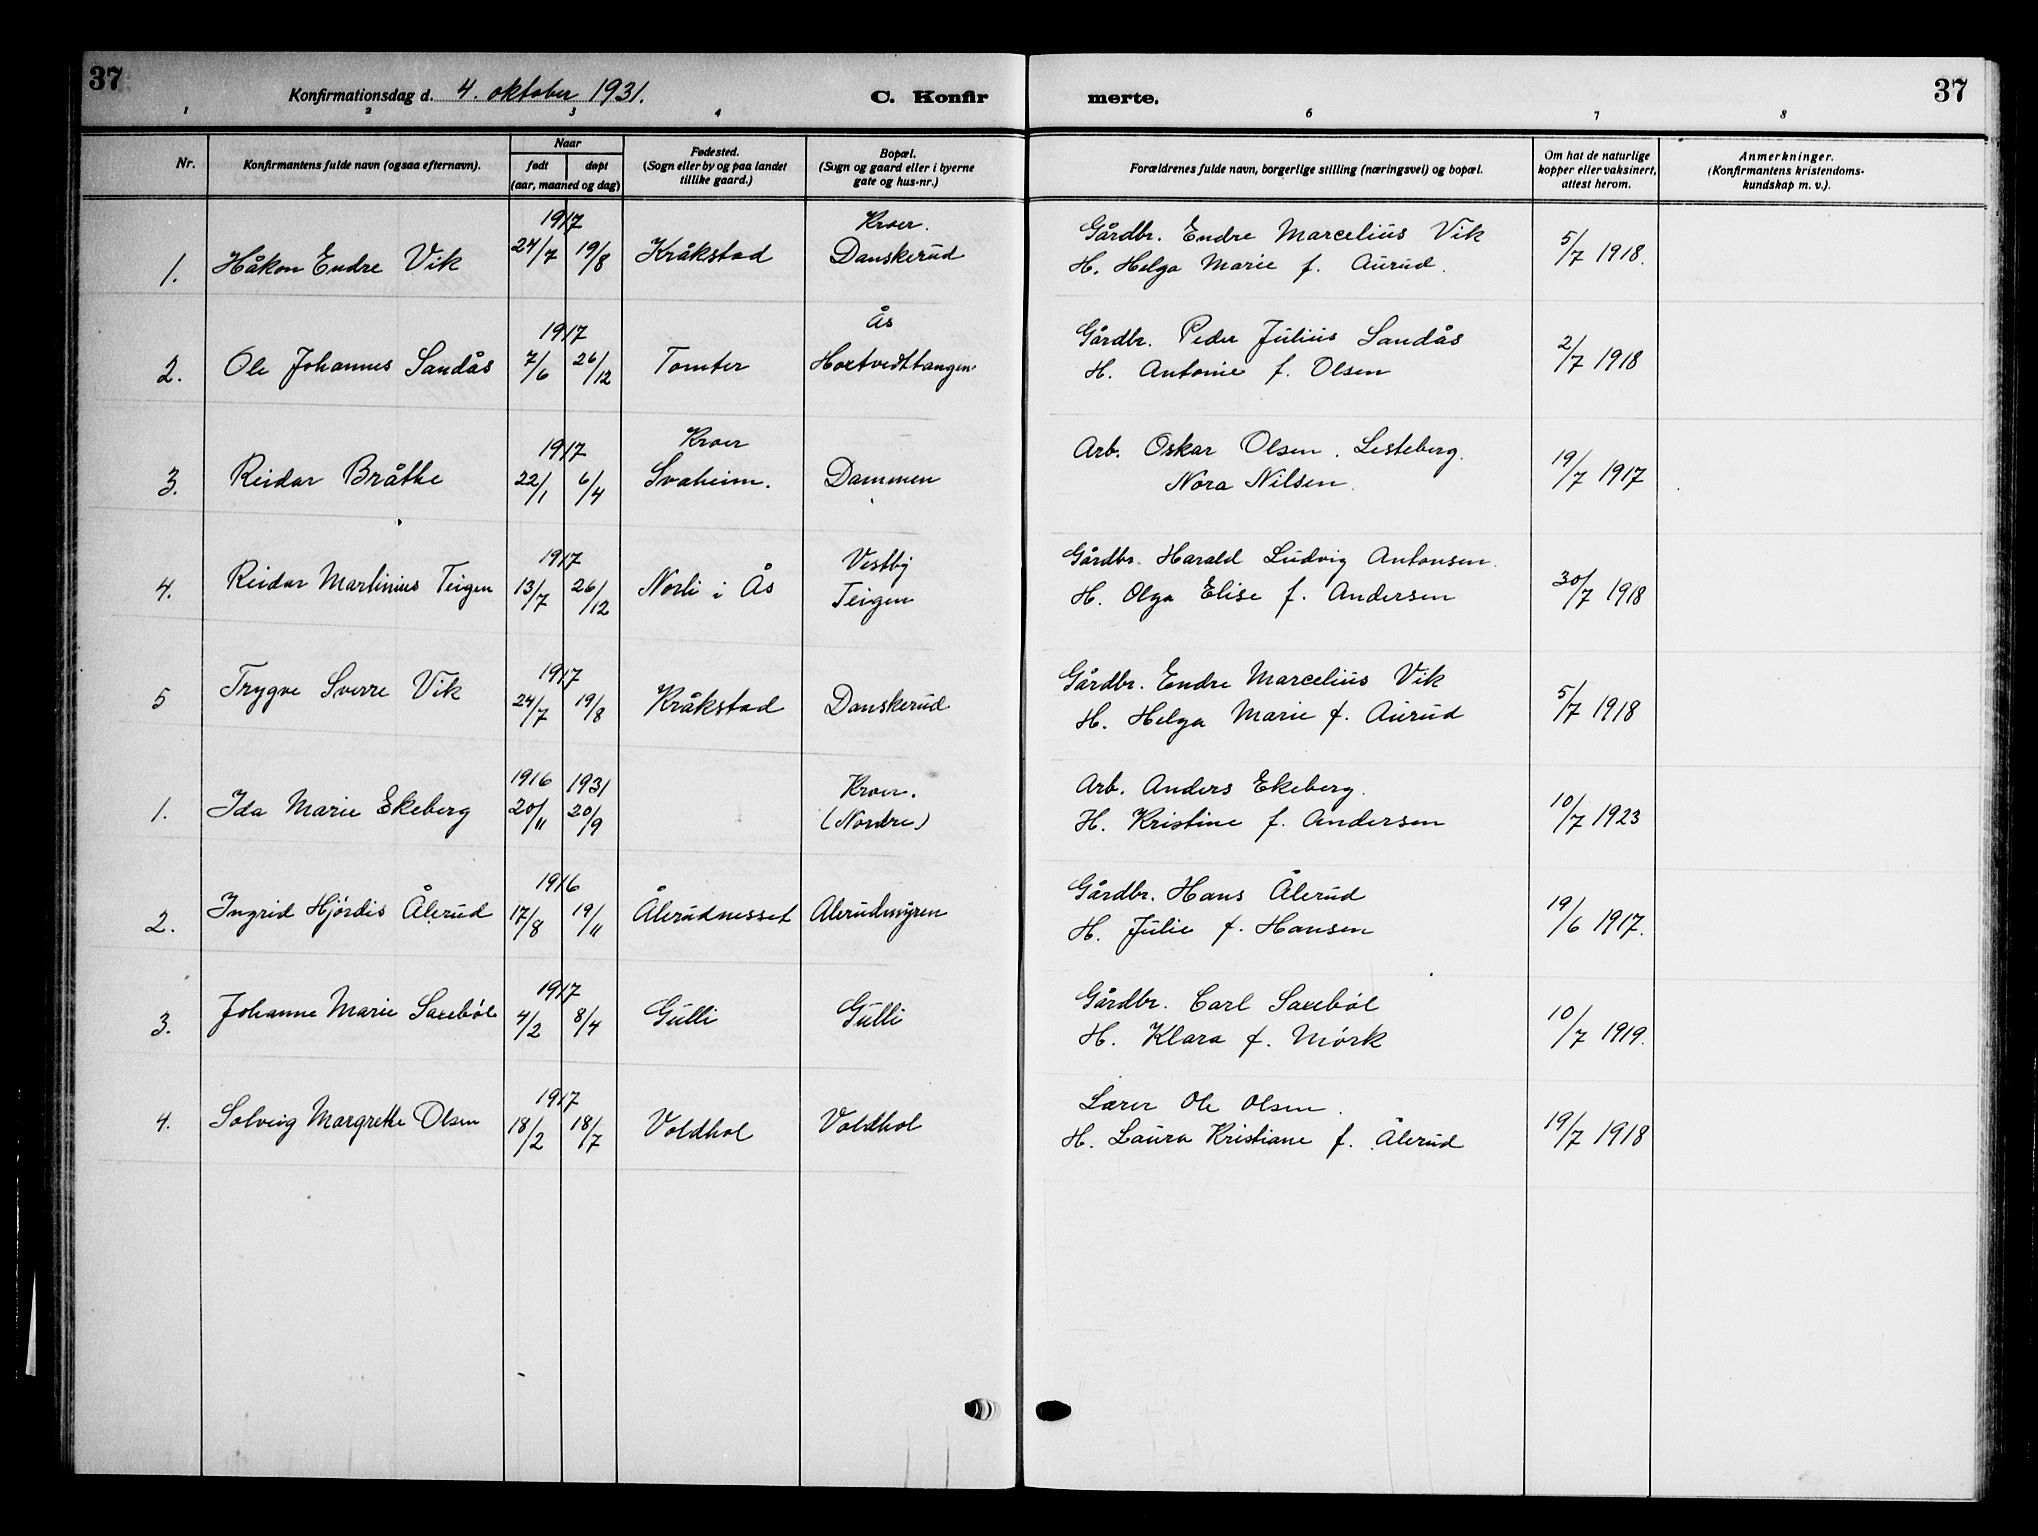 37
Konfirmationsdag d. 4. oktober 1931.
C. Konfir
merte.
37
1 2 3 4 6 7 8
Nr.
Konfirmantens fulde navn (ogsaa efternavn).
Naar
født døpt
(aar, maaned og dag)
Fødested.
(Sogn eller by og paa landet
tillike gaard.)
Bopæl.
(Sogn og gaard eller i byerne
gate og hus-nr.)
Forældrenes fulde navn, borgerlige stilling (næringsvei) og bopæl.
Om hat de naturlige
kopper eller vaksinert,
attest herom.
Anmerkninger.
(Konfirmantens kristendoms-
kundskap m. v.).
1917 Kroer.
1. Håkon Endre Vik 24/7 19/8 Kråkstad Danskerud
Gårdbr. Endre Marcelius Vik
H. Helga Marie f. Aurud.
5/7 1918.
1917 Ås
2. Ole Johannes Sandås 7/6 26/12 Tomter Hortvedttangen
Gårdbr. Peder Julius Sandås
H. Antonie f. Olsen
2/7 1918
1917 Kroer
3. Reidar Bråthe 22/1 6/4 Svaheim. Dammen
Arb. Oskar Olsen. Lesteberg.
Nora Nilsen.
19/7 1917
1917 Vestby
4. Reidar Martinius Teigen 13/7 26/12 Norli i Ås Teigen
Gårdbr. Harald Ludvig Antonsen.
H. Olga Elise f. Andersen
30/7 1918
1917
5 Trygve Sverre Vik 24/7 19/8 Kråkstad Danskerud
Gårdbr. Endre Marcelius Vik
H. Helga Marie f. Aurud
5/7 1918
1916 1931 Kroer.
1. Ida Marie Ekeberg 20/11 20/9 (Nordre)
Arb. Anders Ekeberg.
H. Kristine f. Andersen
10/7 1923
1916
2. Ingrid Hjördis Ålerud 17/8 19/11 Ålerudnesset Alerudmyren
Gårdbr. Hans Ålerud
H. Julie f. Hansen
19/6 1917.
1917
3. Johanne Marie Saxeböl 4/2 8/4 Gulli Gulli
Gårdbr. Carl Saxeböl
H. Klara f. Mörk
10/7 1919.
1917
4. Solveig Margrethe Olsen 18/2 18/7 Voldhol Voldhol
Lærer Ole Olsen.
H. Laura Kristiane f. Ålerud
19/7 1918